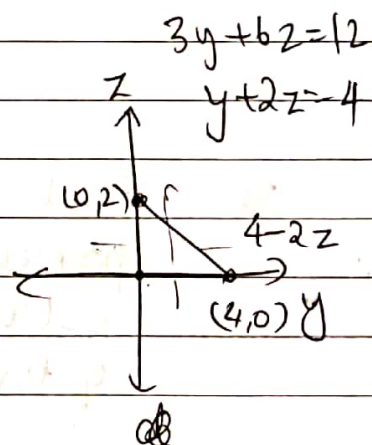 3y+6z=12
y+2z=4
z
(0,2)
4-2z
(4,0) y